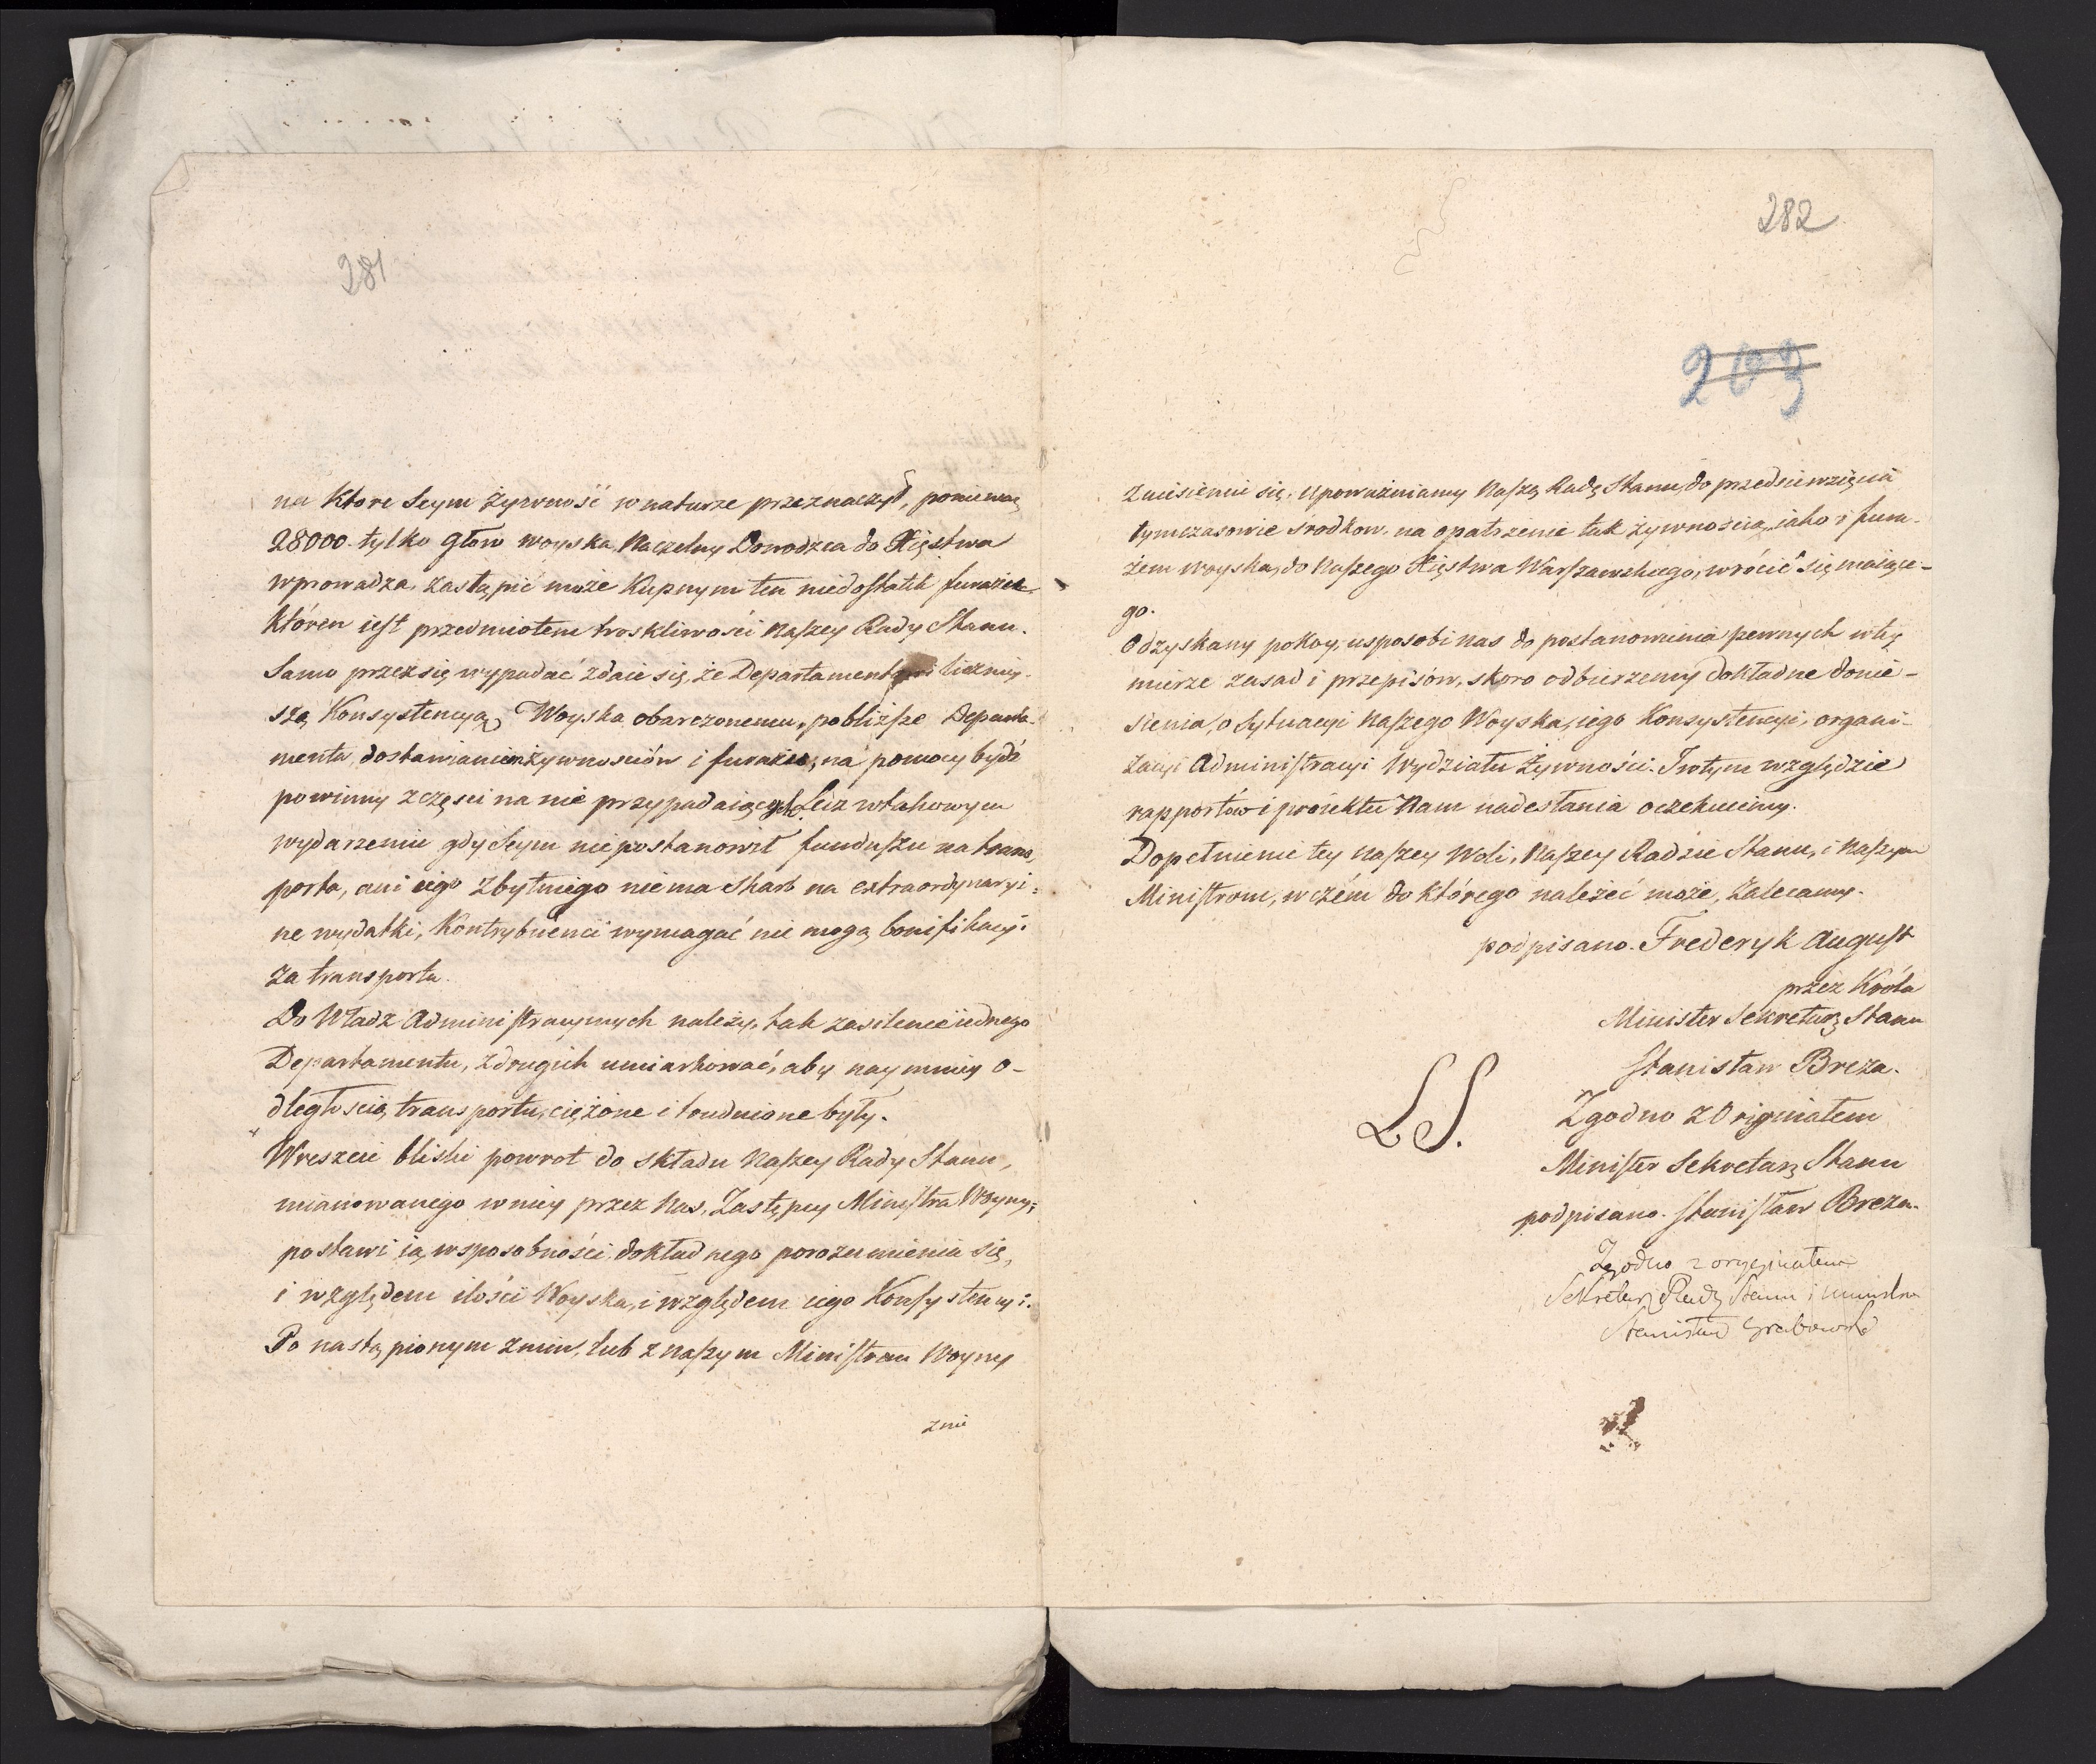 281
na ktore Seym żywność w naturze przeznaczył, ponieważ
28000 tylko głów woyska Naczelny Dowodzca do Xięstwa
wprowadza, zastąpić może kupnym ten niedostatek
któren iest przedmiotem troskliwości Naszey Rady Stanu.
Samo przez się wypadać zdaie się, że liczniey-
szą Konsystencyą Woyska obarczonemu, pobliższe Departa-
menta dostawianiem żywnościów i furażu, na pomocy bydź
powinny z części na nie przypadaiących. Lecz w takowym
wydarzeniu gdy Seym nie postanowił funduszu na trans-
porta, ani iego zbytniego nie ma Skarb na extraordynaryi-
ne wydatki, Kontrybuenci wymagać nie mogą bonifikacyi
za transporta.
Do Władz Administracyinych należy, tak zasilenie iednego
Departamentu, z drugich umiarkować, aby naymniey o-
dległością transportu, ciężone i trudnione były.
Wreszcie bliski powrot do składu Naszey Rady Stanu,
mianowanego w niey przez Nas, Zastępcy Ministra Woyny,
postawi ią w sposobności dokładnego porozumienia się,
i względem ilości Woyska, i względem iego Konsystencyi.
Po nastąpionym z nim, lub z naszym Ministrem Woyny
znie
282
209
zniesieniu się, upoważniamy Naszą Radę Stanu, do przedsięwzięcia
tymczasowie środkow na opatrzenie tak żywnością, iako i fura-
żem woyska, do Naszego Xięstwa Warszawskiego, wrócić się maiące-
go.
Odzyskany pokoy, usposobi nas do postanowienia pewnych w tey
mierze zasad i przepisów, skoro odbierzemy dokładne donie-
sienia, o Sytuacyi Naszego Woyska, iego Konsystencyi, organi-
zacyi Administracyi Wydziału Żywności. I w tym względzie
rapportów i proiektu Nam nadesłania oczekuiemy.
Dopełnienie tey Naszey Woli, Naszey Radzie Stanu, i Naszym
Ministrom, w czém do którego należeć może, zalecamy.
podpisano. Frederyk August
przez Króla
Minister Sekretarz Stanu
Stanisław Breza.
LS.
Zgodno z Originałem
Minister Sekretarz Stanu
podpisano. Stanisław Breza.
Zgodno z oryginałem
Sekretarz Rady Stanu i ministrów
Stanisław Grabowski